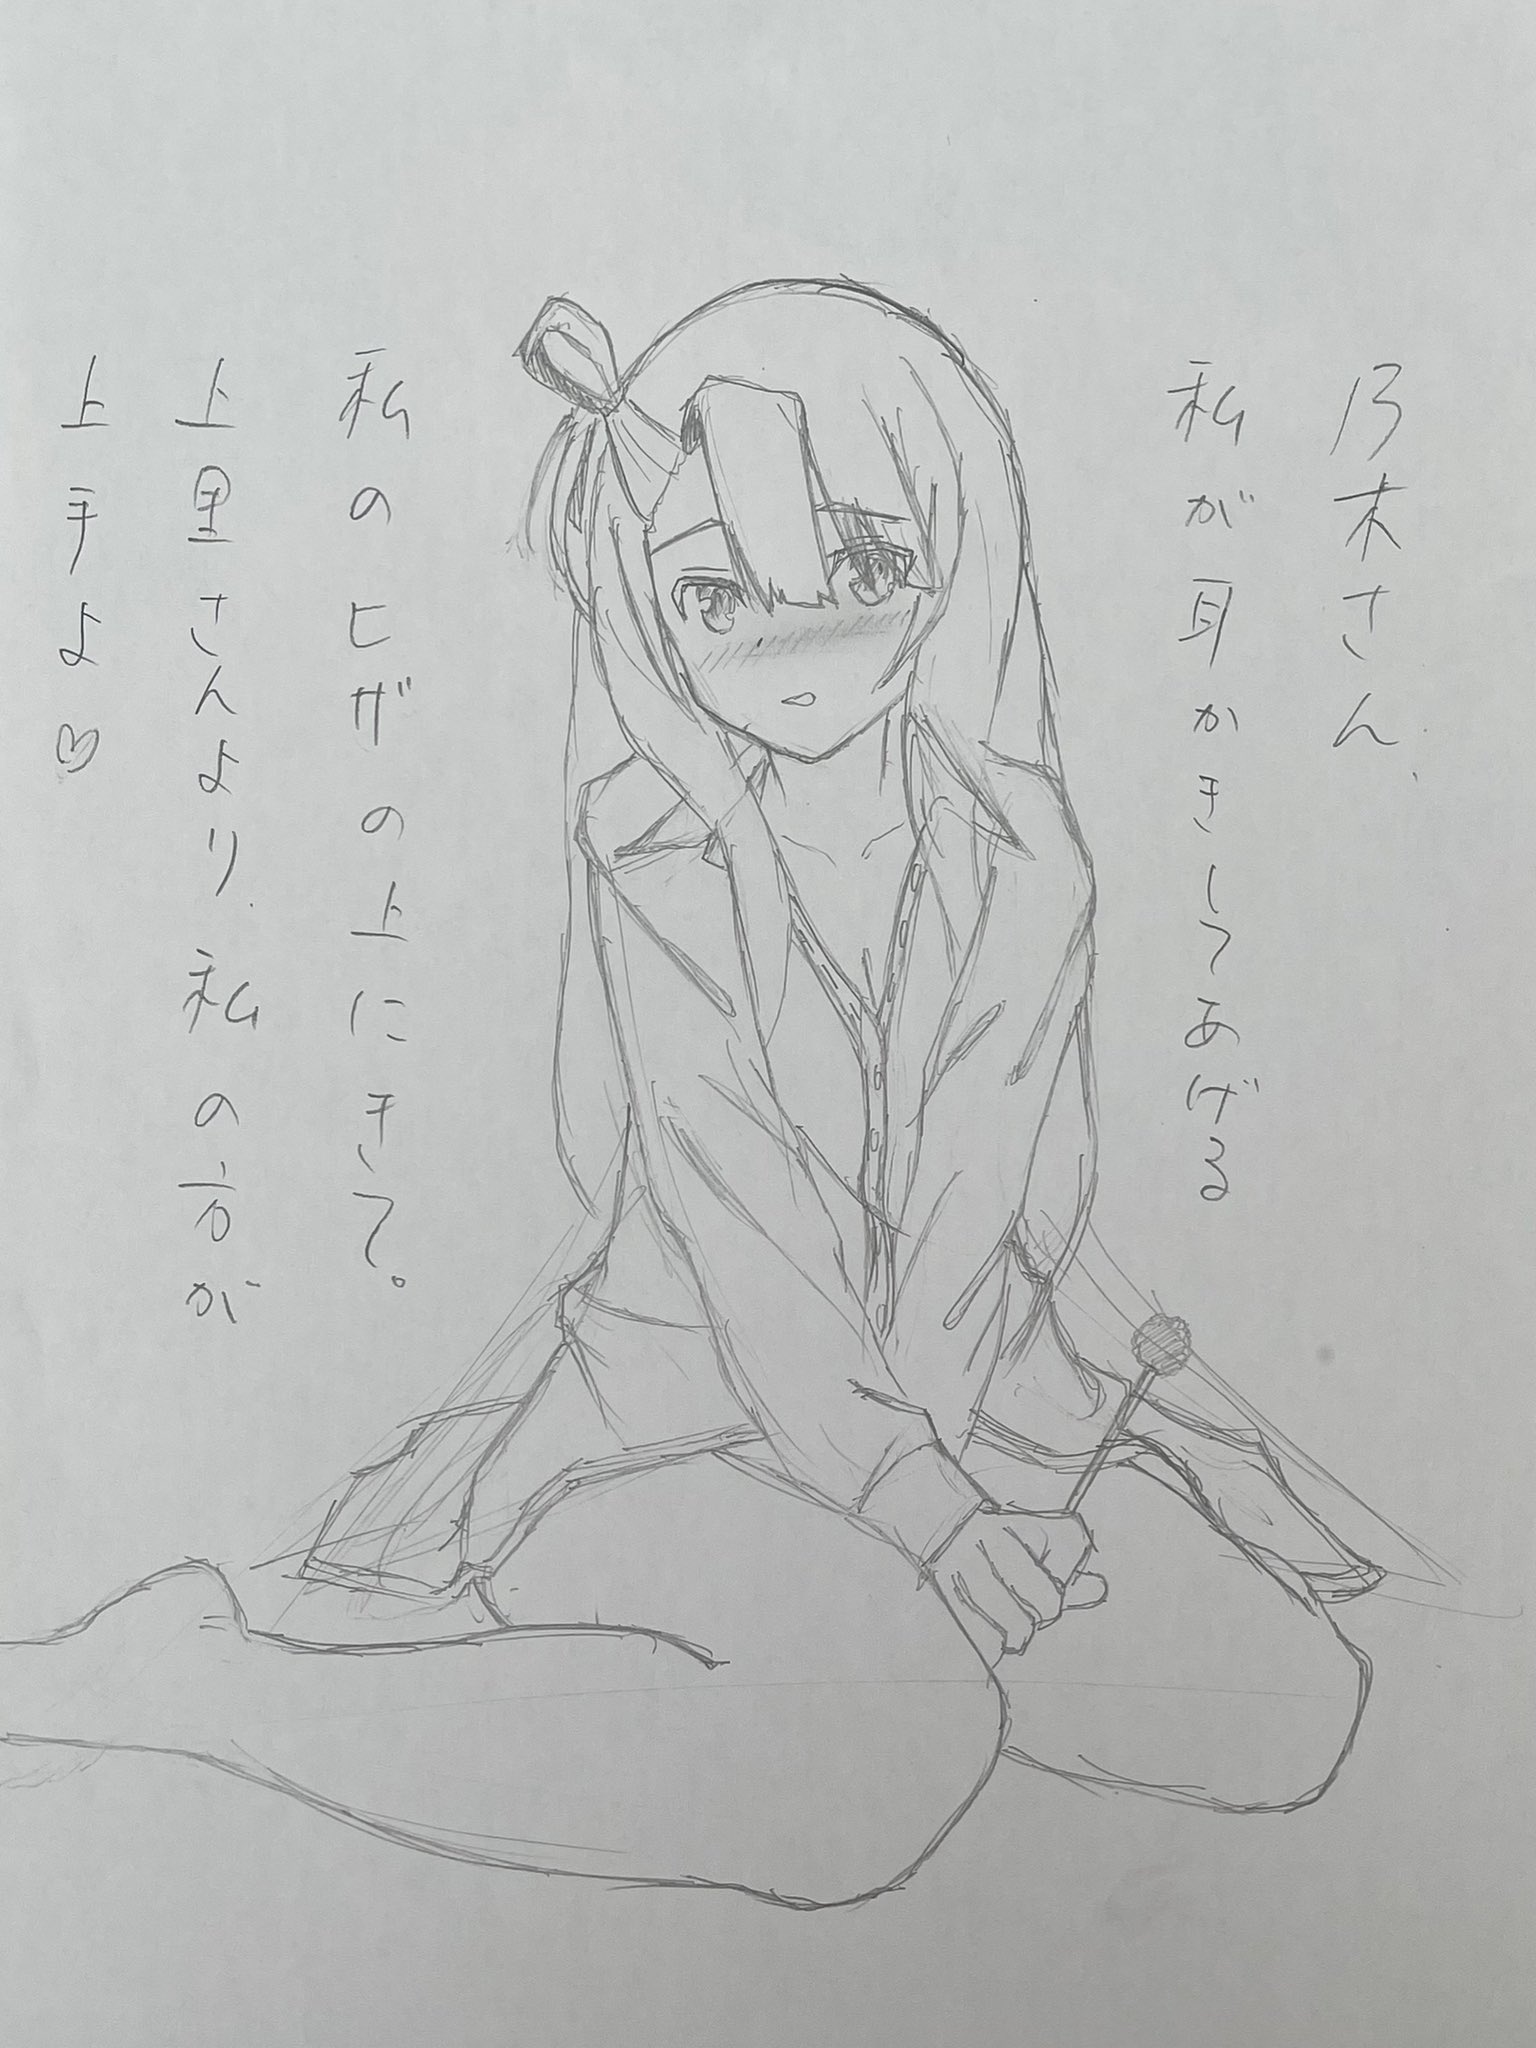 乃木さん、
私が耳かきしてあげる
私のヒザの上にきて。
上里さんより、私の方が
上手よ♡